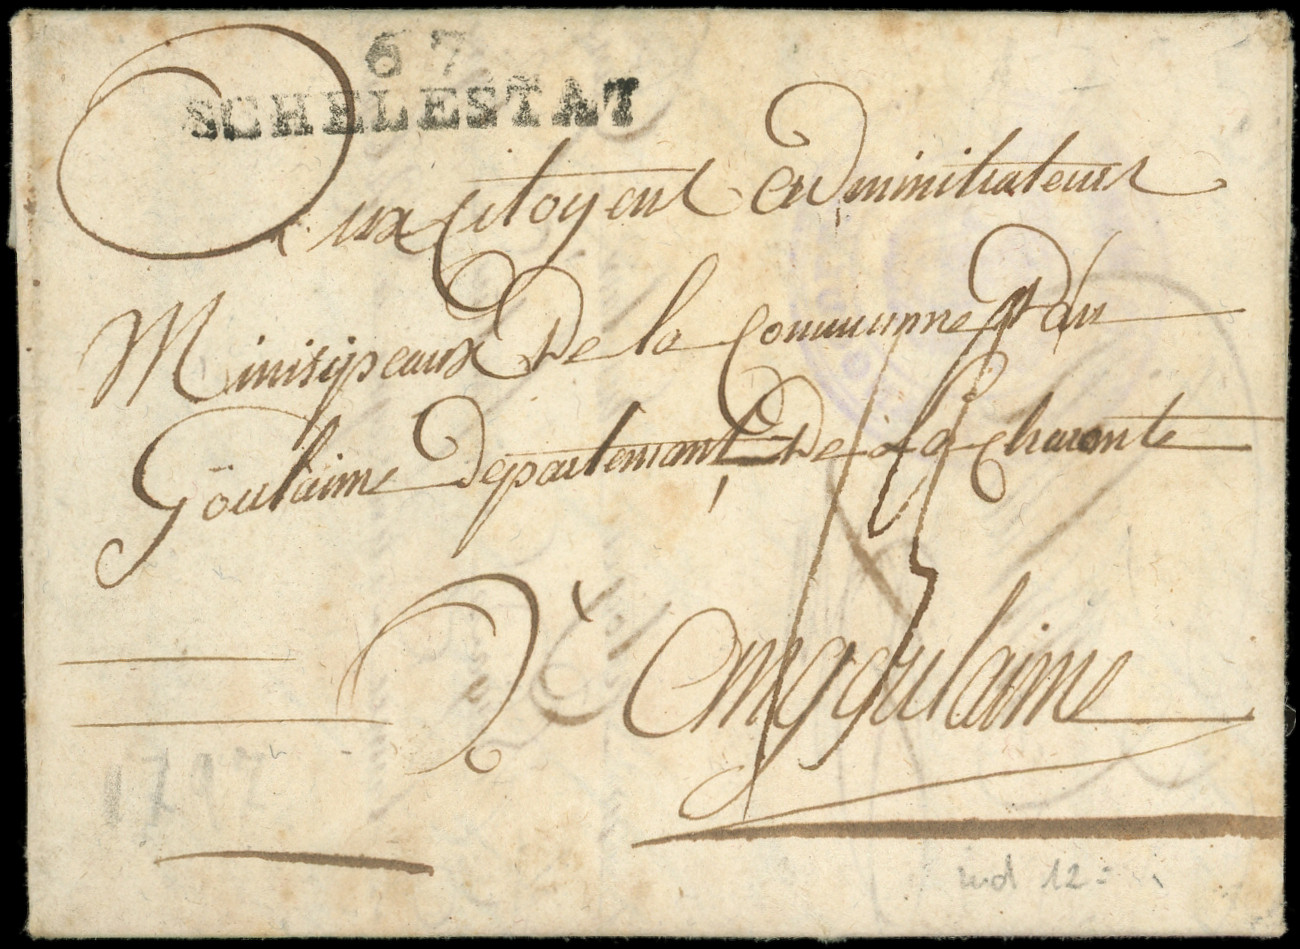 67
SCHELESTAT
Aux Citoyens Adminitrateurs
Minisipeaux De la Commune
Goulaime Departement De La Charante
Angoulaime
1797
ind 12=